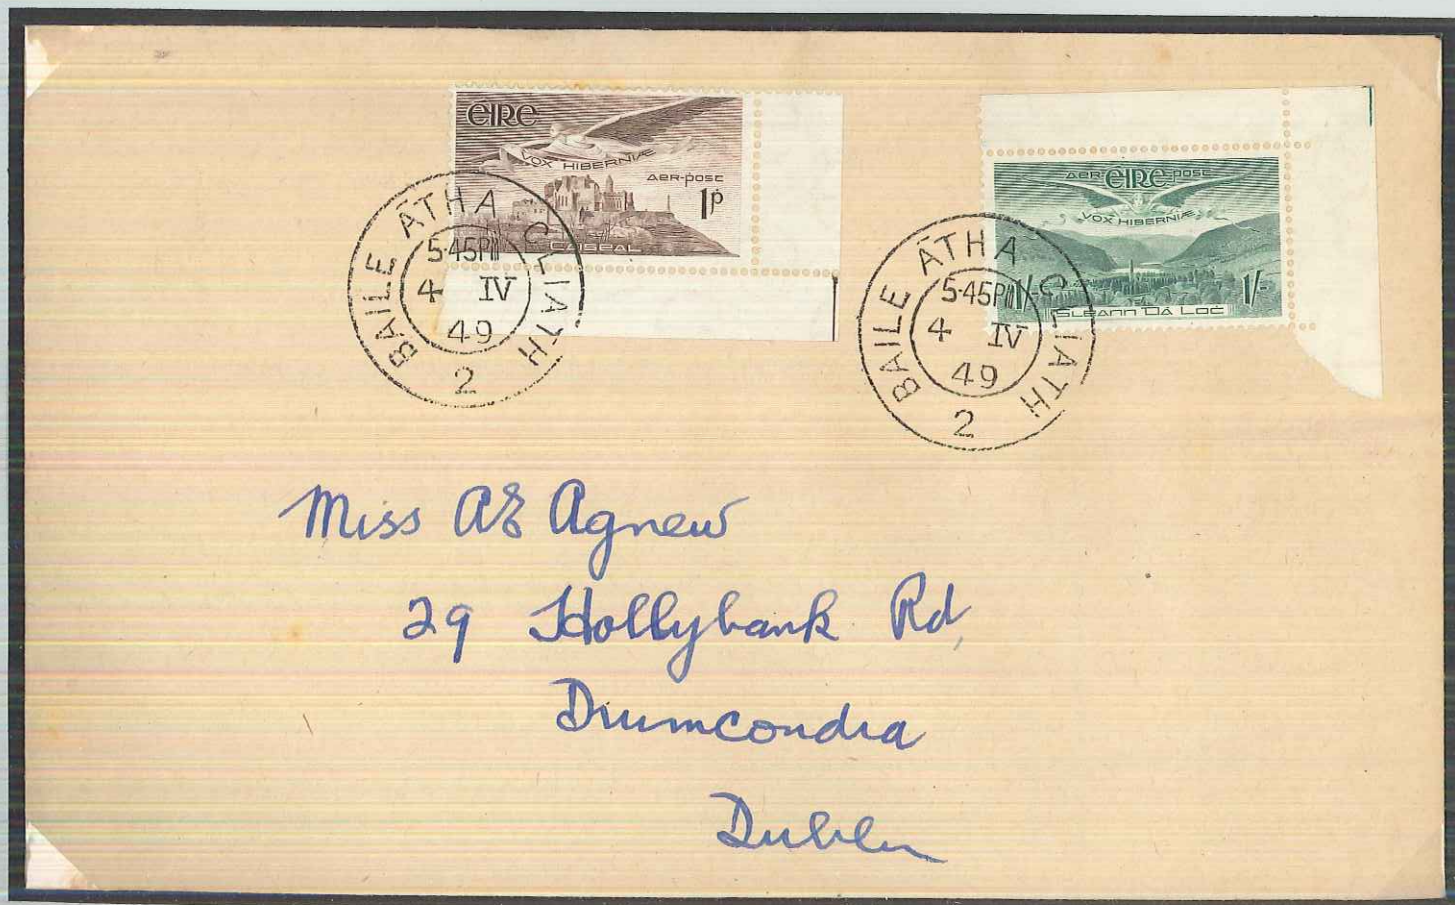 EIRE
VOX HIBERNIÆ
AER-POST
1P
CAISEAL
BAILE ÁTHA CLIATH
5·45PM
4 IV
49
2
AER EIRE POST
VOX HIBERNIÆ
1/- 1/-
GLEANN DÁ LOĊ
BAILE ÁTHA CLIATH
5·45PM
4 IV
49
2
Miss AE Agnew
29 Hollybank Rd,
Drumcondra
Dublin